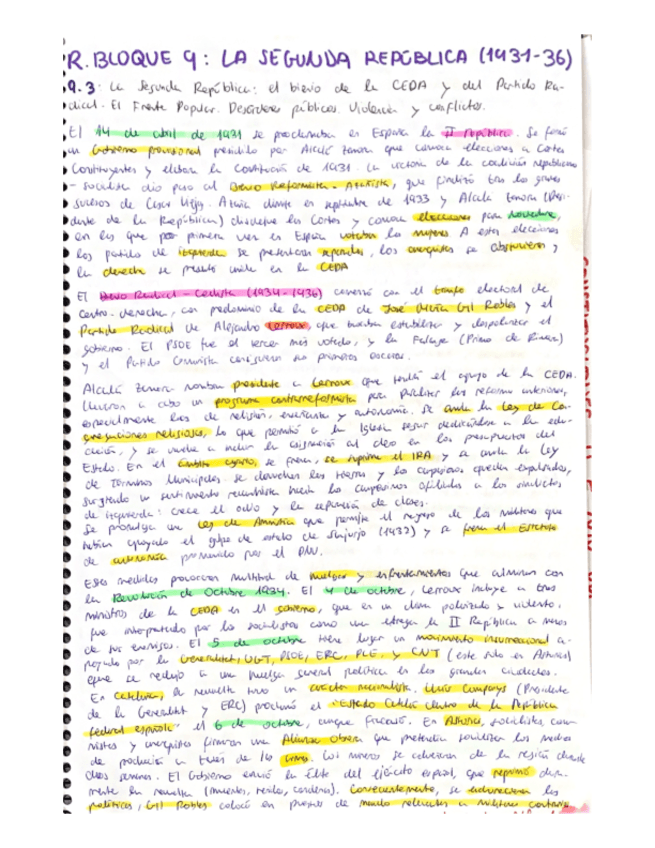 R. BLOQUE 9: LA SEGUNDA REPÚBLICA (1931-36)
9.3: La Segunda República: el bienio de la CEDA y del Partido Ra-
dical. El Frente Popular. Desórdenes públicos. Violencia y conflictos.
El 14 de abril de 1931 se proclamaba en España la II República. Se formó
un Gobierno provisional presidido por Alcalá Zamora que convoca elecciones a Cortes
Constituyentes y elabora la Constitución de 1931. La victoria de la coalición republicano
- socialista dio paso al Bienio Reformista - Azañista, que finalizó tras los graves
sucesos de Casas Viejas. Azaña dimite en septiembre de 1933 y Alcalá Zamora (Presi-
dente de la República) disuelve las Cortes y convoca elecciones para noviembre,
en las que por primera vez en España votaban las mujeres. A estas elecciones
los partidos de izquierda se presentaron separados, los anarquistas se abstuvieron y
la derecha se presentó unida en la CEDA
El Bienio Radical - Cedista (1934-1936) comenzó con el triunfo electoral de
centro-derecha, con predominio de la CEDA de José María Gil Robles y el
Partido Radical de Alejandro Lerroux, que buscaba estabilizar y despolarizar el
gobierno. El PSOE fue el tercer más votado, y la Falange (Primo de Rivera)
y el Partido Comunista consiguieron sus primeros escaños.
Alcalá Zamora nombra presidente a Lerroux que tendrá el apoyo de la CEDA.
Llevaron a cabo un programa contrarreformista para paralizar las reformas anteriores,
especialmente las de religión, enseñanza y autonomía. Se anula la Ley de Con-
gregaciones religiosas, lo que permitió a la Iglesia seguir dedicándose a la edu-
cación, y se vuelve a incluir la asignación al clero en los presupuestos del
Estado. En el ámbito agrario, se frena, se suprime el IRA y se anula la Ley
de Términos Municipales. Se devuelven las tierras y los campesinos quedan expulsados,
surgiendo un sentimiento revanchista hacia los campesinos afiliados a los sindicatos
de izquierda: crece el odio y la separación de clases.
Se promulga una Ley de Amnistía que permite el regreso de los militares que
habían apoyado el golpe de estado de Sanjurjo (1932) y se frena el Estatuto
de autonomía promovido por el PNV.
Estas medidas provocaron multitud de huelgas y enfrentamientos que culminan con
la Revolución de Octubre 1934. El 4 de octubre, Lerroux incluye a tres
ministros de la CEDA en el gobierno, que en un clima polarizado y violento,
fue interpretado por los socialistas como una entrega de la II República a manos
de sus enemigos. El 5 de octubre tiene lugar un movimiento insurreccional a-
poyado por la Generalitat, UGT, PSOE, ERC, PCE, y CNT (este solo en Asturias)
que se redujo a una huelga general política en las grandes ciudades.
En Cataluña, la revuelta tuvo un carácter nacionalista. Lluís Companys (Presidente
de la Generalitat y ERC) proclamó el "Estado Catalán dentro de la República
federal española" el 6 de octubre, aunque fracasó. En Asturias, socialistas, comu-
nistas y anarquistas firmaron una Alianza Obrera que pretendía socializar los medios
de producción a través de las armas. Los mineros se adueñaron de la región durante
dos semanas. El Gobierno envió la élite del ejército español, que reprimió dura-
mente la revuelta (muertos, heridos, condenas). Consecuentemente, se endurecieron las
políticas, Gil Robles colocó en puestos de mando relevantes a militares contrarios